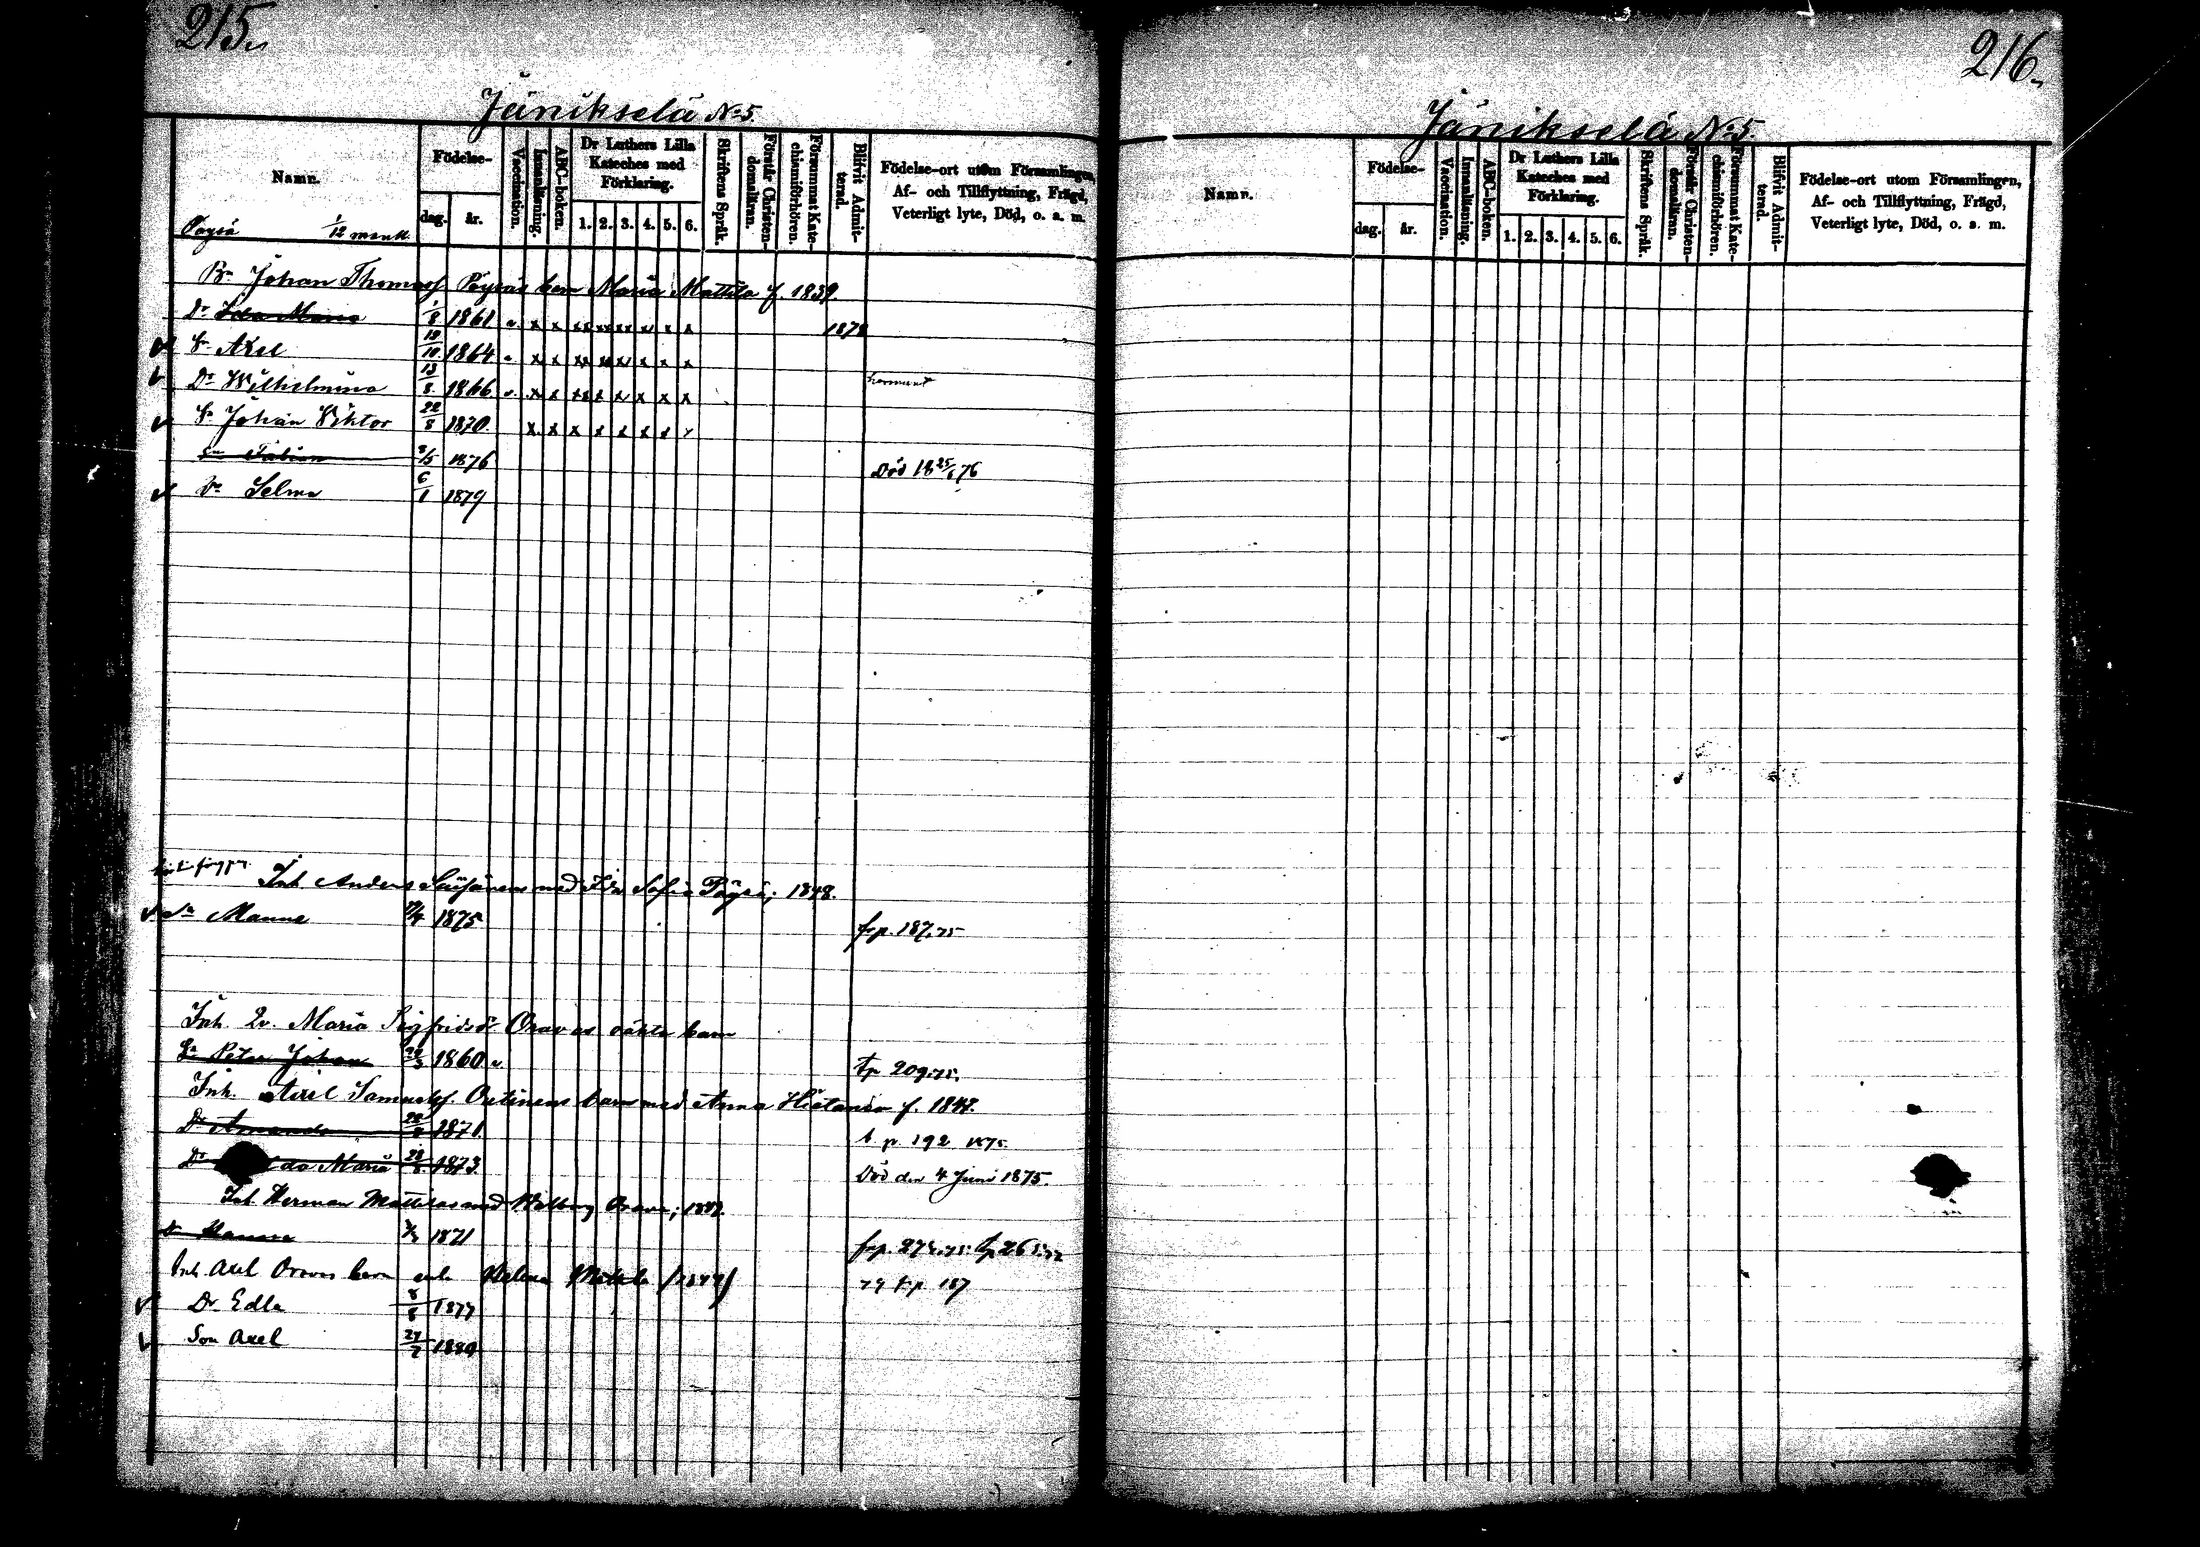 215.
Jänikselä No 5.
Namn.
Födelse-
dag.
år.
Vaccination.
Innanläsning.
ABC-boken.
Dr Luthers Lilla Kateches med Förklaring.
1. 2. 3. 4. 5. 6.
Skriftens Språk.
Förstår Christen-domsläran.
Försummat Kate-chismiförhören.
Blifvit Admit-terad.
Födelse-ort utom Församlingen,
Af- och Tillflyttning, Frägd,
Veterligt lyte, Död, o. a. m.
Pöysä 1/12 mantl.
Bn Johan Thomass Pöysäs barn Maria Mattila f. 1839.
Dr Ida Maria 1/8 1861 v. x x x x x x x x x 1878
Sn Axel 12/10 1864 x x x x x x x x
Dr Wilhelmina 13/8 1866 v. x x x x x x x x
Sn Johan Viktor 22/8 1870. x x x x x x x x
Sn Fabian 3/5 1876 Död 18 25/6 76
Dr Selma 6/1 1879
Inh Anders med Ida Sofia Pöysä; 1848.
Sn Manne 1875 frp. 187.75
Inh. Qv. Maria Sigfridsdr Oravas oäkta barn
Sn Petter Johan 1860 v tp 209.75.
Inh. Axel Samuelss. barn med Anna Hietanen f. 1848.
Dr Amanda 1871. t. p. 192 1875.
Dr da Maria 28/8 1873. Död den 4 Juni 1875.
Inh. Herman Mattilas med Walborg Orava; 1848.
Sn Manne 1871 frp. 274.75.
Inh. Axel Oravas barn Helena (1844) 79 frp. 187
Dr Edla 8/8 1877
Son Axel 27/7 1880
216.
Jänikselä No 5.
Namn.
Födelse-
dag.
år.
Vaccination.
Innanläsning.
ABC-boken.
Dr Luthers Lilla Kateches med Förklaring.
1. 2. 3. 4. 5. 6.
Skriftens Språk.
Förstår Christen-domsläran.
Försummat Kate-chismiförhören.
Blifvit Admit-terad.
Födelse-ort utom Församlingen,
Af- och Tillflyttning, Frägd,
Veterligt lyte, Död, o. s. m.